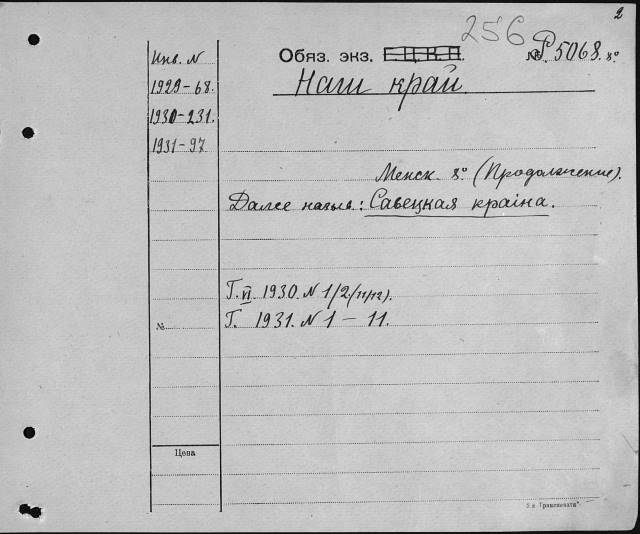 2
256
Обяз. экз. Е.Ц.К.П. № Р 5068. 8º
Инв. N
1929-68.
1930-231.
1931-97.
Наш край.
Менск. 8º (Продолжение).
Далее назыв.: Савецкая краіна.
Г. VI. 1930. N 1/2 (11/12).
Г. 1931. N 1 - 11.
№
Цена